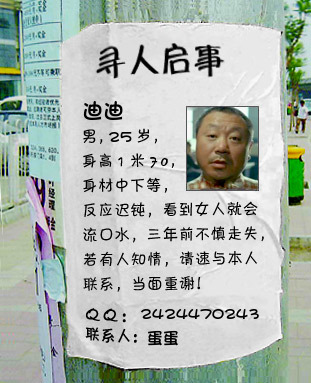 寻人启事
迪迪
男,25岁,
身高1米70,
身材中下等,
反应迟钝，看到女人就会
流口水，三年前不慎走失,
若有人知情，请速与本人
联系，当面重谢!
QQ：2424470243
联系人：蛋蛋